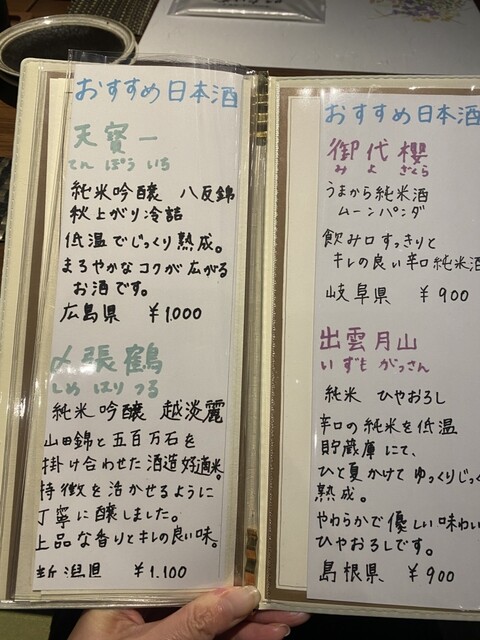 おすすめ日本酒
天寳一
てん ぽう いち
純米吟醸 八反錦
秋上がり冷詰
低温でじっくり熟成。
まろやかなコクが広がる
お酒です。
広島県 ¥1.000
〆張鶴
しめ はり つる
純米吟醸 越淡麗
山田錦と五百万石を
掛け合わせた酒造好適米。
特徴を活かせるように
丁寧に醸しました。
上品な香りとキレの良い味。
新潟県 ¥1.100
おすすめ日本酒
御代櫻
み よ ざくら
うまから純米酒
ムーンパンダ
飲み口すっきりと
キレの良い辛口純米酒
岐阜県 ¥900
出雲月山
いずも がっさん
純米 ひやおろし
辛口の純米を低温
貯蔵庫にて、
ひと夏かけてゆっくりじっ
熟成。
やわらかで優しい味わい
ひやおろしです。
島根県 ¥900